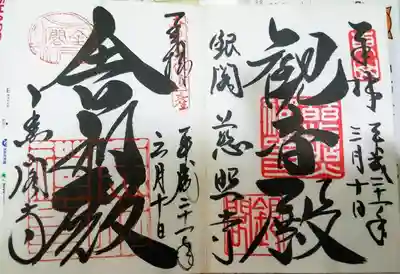 奉拝 平成二十一年
三月十日
観音殿
銀閣 慈照寺
奉拝
平成二十一年
三月十日
舎利殿
金閣寺